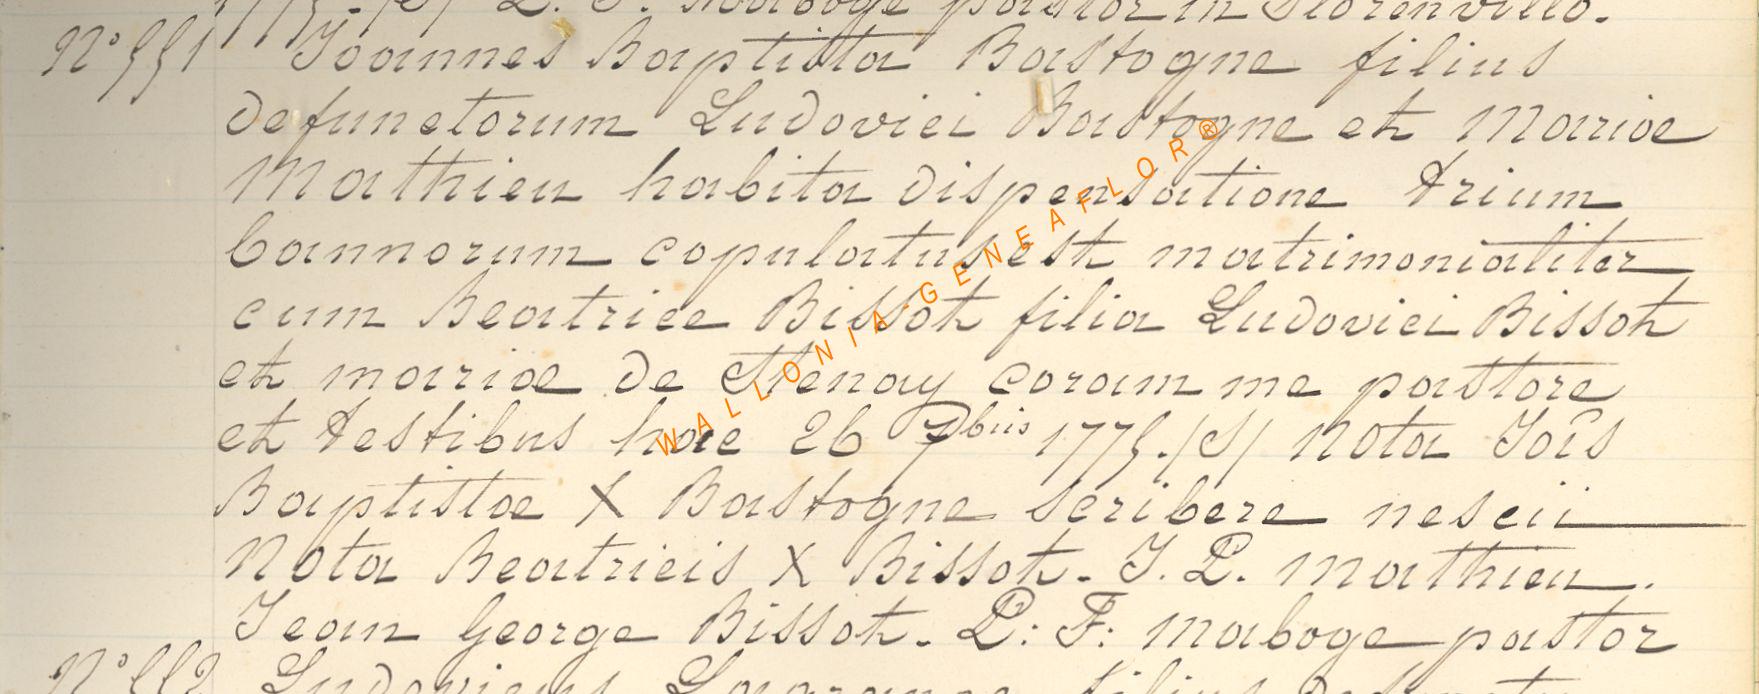 1775. (S) L. F. Maboge pastor in Florenville.
N° 551 Joannes Baptista Bastogne filius
defunctorum Ludovici Bastogne et Mariae
Mathieu habita dispensatione trium
bannorum copulatus est matrimonialiter
cum Beatrice Bissot filia Ludovici Bissot
et mariae de Stenay coram me pastore
et testibus hac 26 7bris 1775. (S) Nota Jois
Baptistae X Bastogne scribere nescii
Nota Beatricis X Bissot. J. L. Mathieu.
Jean George Bissot. L: F: Maboge pastor
N° 552 Ludovicus filius defuncti
WALLONIA-GENEAFLOR®